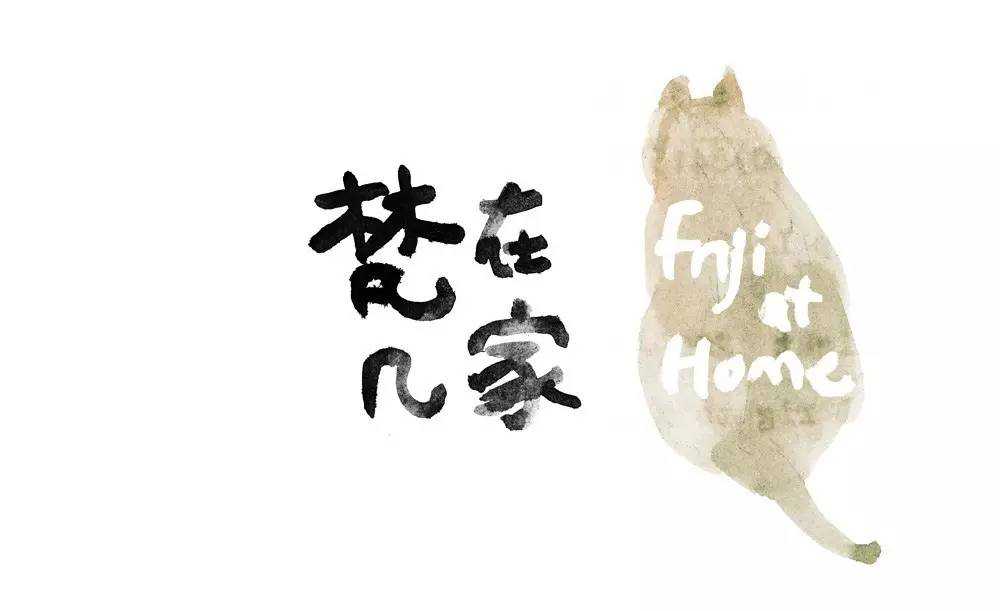 梵几
在家
Fnji
at
Home